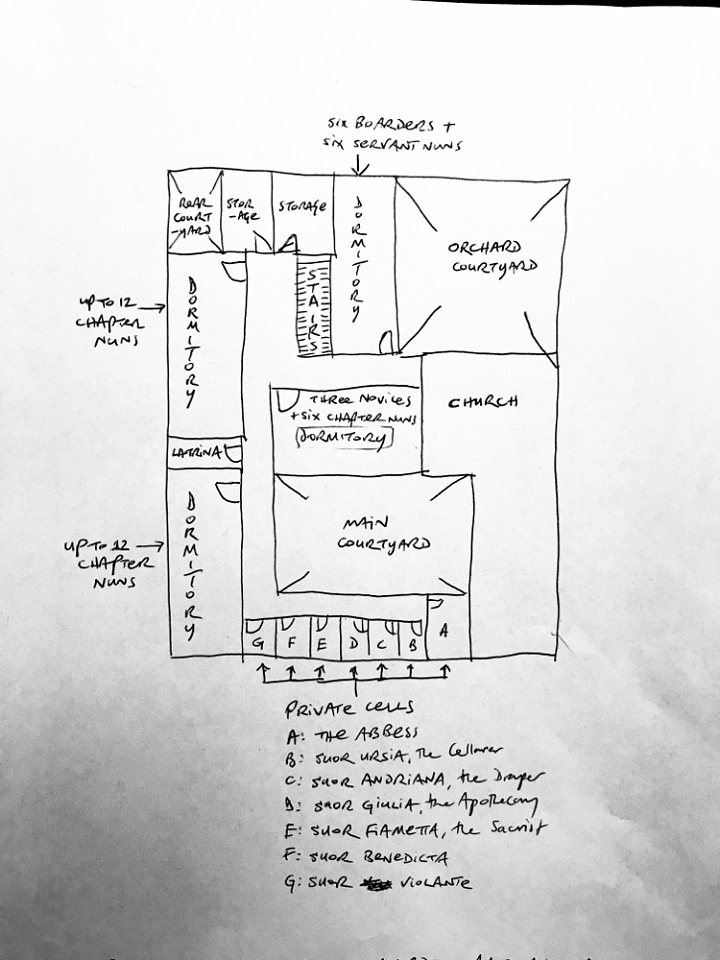 SIX BOARDERS +
SIX SERVANT NUNS
REAR
COURT
-YARD
STOR
-AGE
STORAGE
DORMITORY
ORCHARD
COURTYARD
STAIRS
UP TO 12
CHAPTER
NUNS
DORMITORY
THREE NOVICES
+ SIX CHAPTER NUNS
DORMITORY
CHURCH
LATRINA
MAIN
COURTYARD
UP TO 12
CHAPTER
NUNS
DORMITORY
G F E D C B A
PRIVATE CELLS
A: THE ABBESS
B: SUOR URSIA, the Cellarer
C: SUOR ANDRIANA, the Draper
D: SUOR GIULIA, the Apothecary
E: SUOR FIAMETTA, the Sacrist
F: SUOR BENEDICTA
G: SUOR VIOLANTE